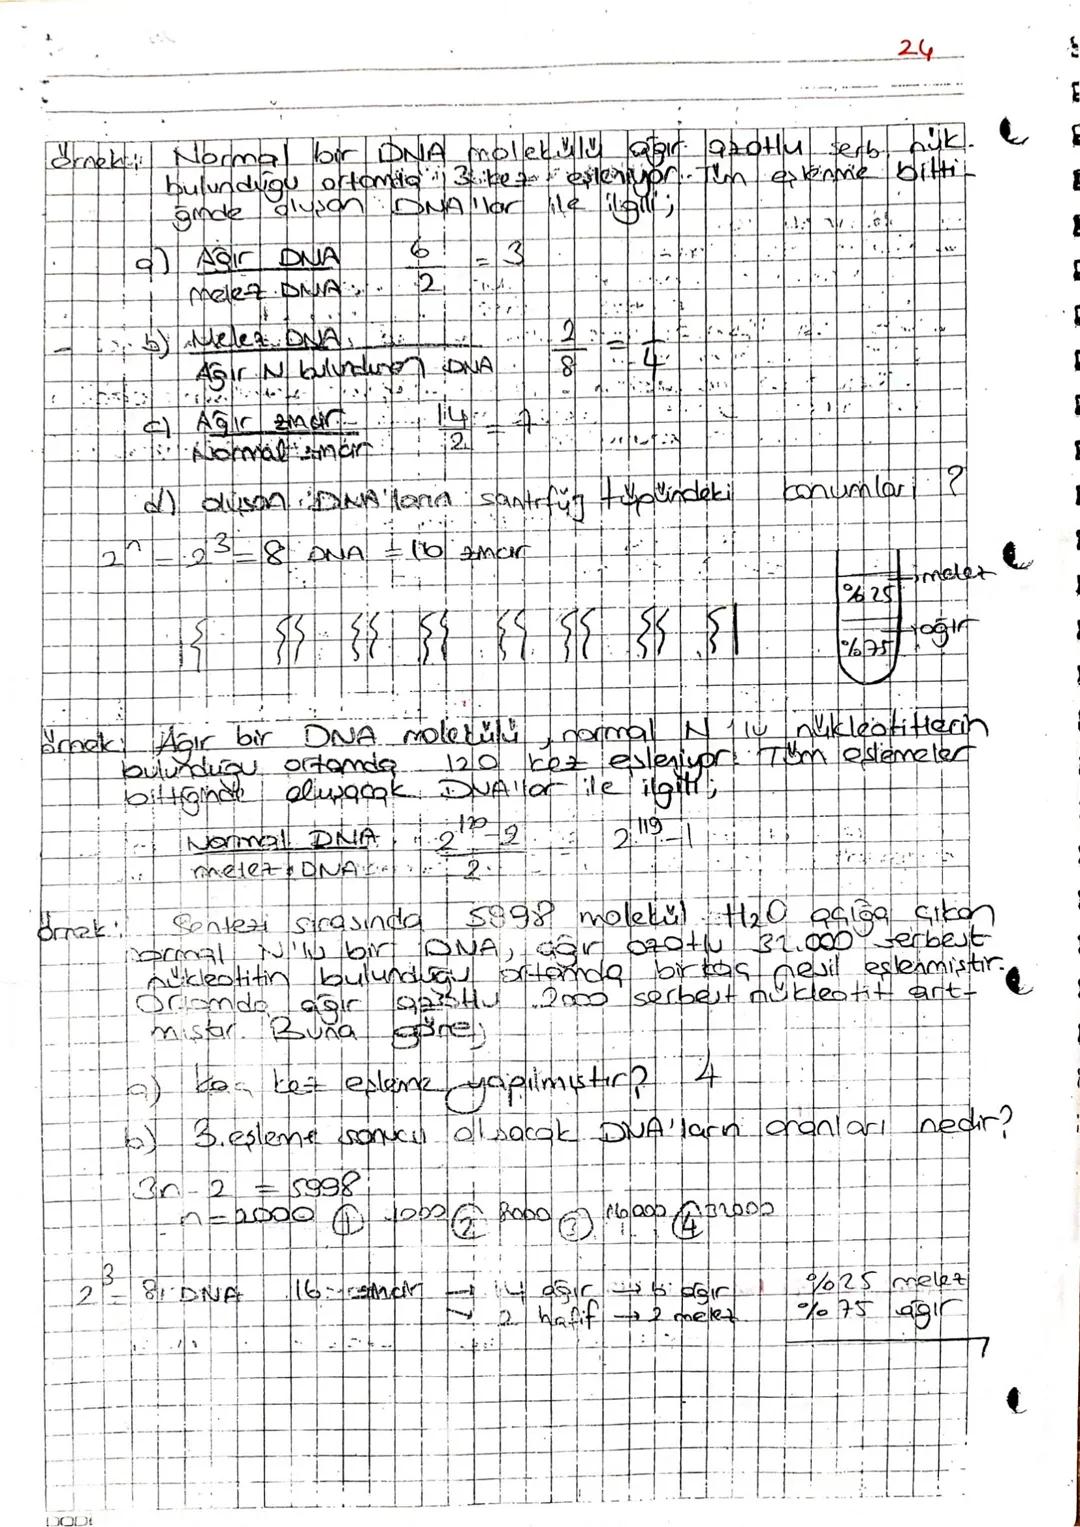 24
Örnek: Normal bir DNA molekülü ağır azotlu serb. nük.
bulunduğu ortamda 3 kez eşleniyor. Tüm eşlenme bitti-
ğinde oluşan DNA'lar ile ilgili;
a) Ağır DNA
melez DNA
6
2
= 3
b) Melez DNA
Ağır N bulunduran DNA
2
8
=
1
4
c) Ağır zincir
Normal zincir
14
2
= 7
d) oluşan DNA'ların santrfüj tüpündeki konumları ?
2ⁿ = 2³ = 8 DNA = 16 zincir
%25 melez
%75 ağır
Örnek: Ağır bir DNA molekülü, normal N'lu nükleotitlerin
bulunduğu ortamda 120 kez eşleniyor. Tüm eşlemeler
bittiğinde oluşacak DNA'lar ile ilgili;
Normal DNA
melez DNA
2¹²⁰-2
2
= 2¹¹⁹-1
Örnek: Sentezi sırasında 5998 molekül H₂O açığa çıkan
normal N'lu bir DNA, ağır azotlu 32.000 serbest
nükleotitin bulunduğu ortamda birkaç nesil eşlenmiştir.
Ortamda ağır azotlu 2000 serbest nükleotit art-
mıştır. Buna göre;
a) kaç kez eşleme yapılmıştır? 4
b) 3. eşleme sonucu oluşacak DNA'ların oranları nedir?
3n-2 = 5998
n=2000 ① ② 8000 ③ 16000 ④ 32000
2³ = 8 DNA 16 zincir → 14 ağır → 6 ağır %25 melez
→ 2 hafif → 2 melez %75 ağır